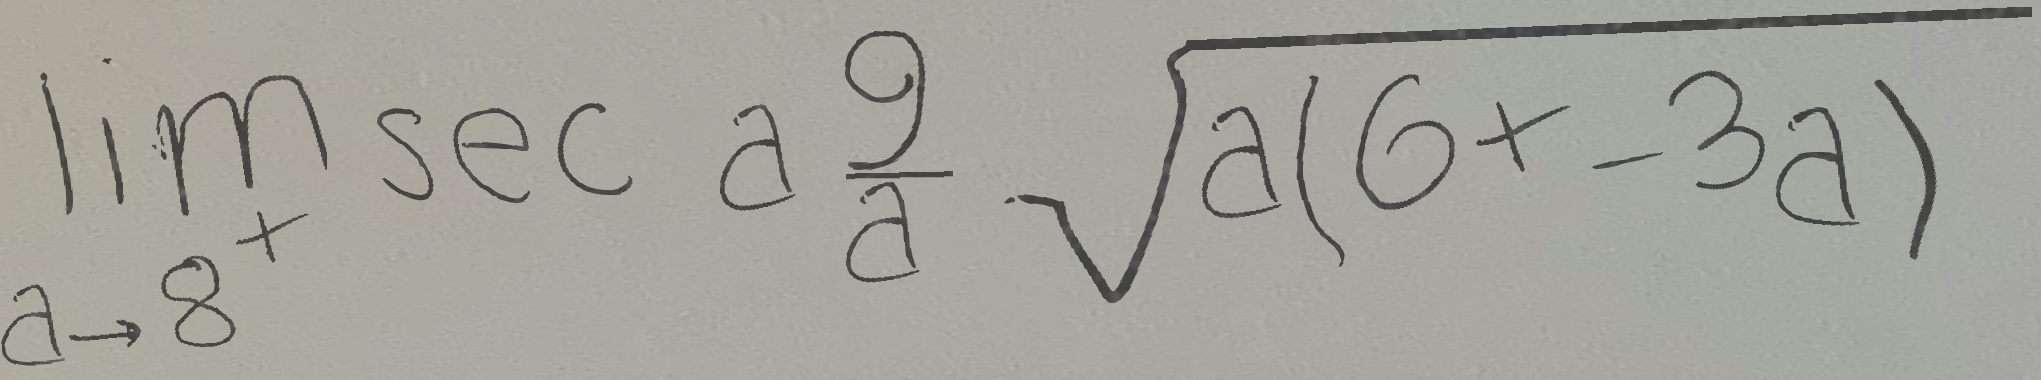 \lim_{a \to 8^+} \sec a \frac{9}{a} \sqrt{a(6+-3a)}